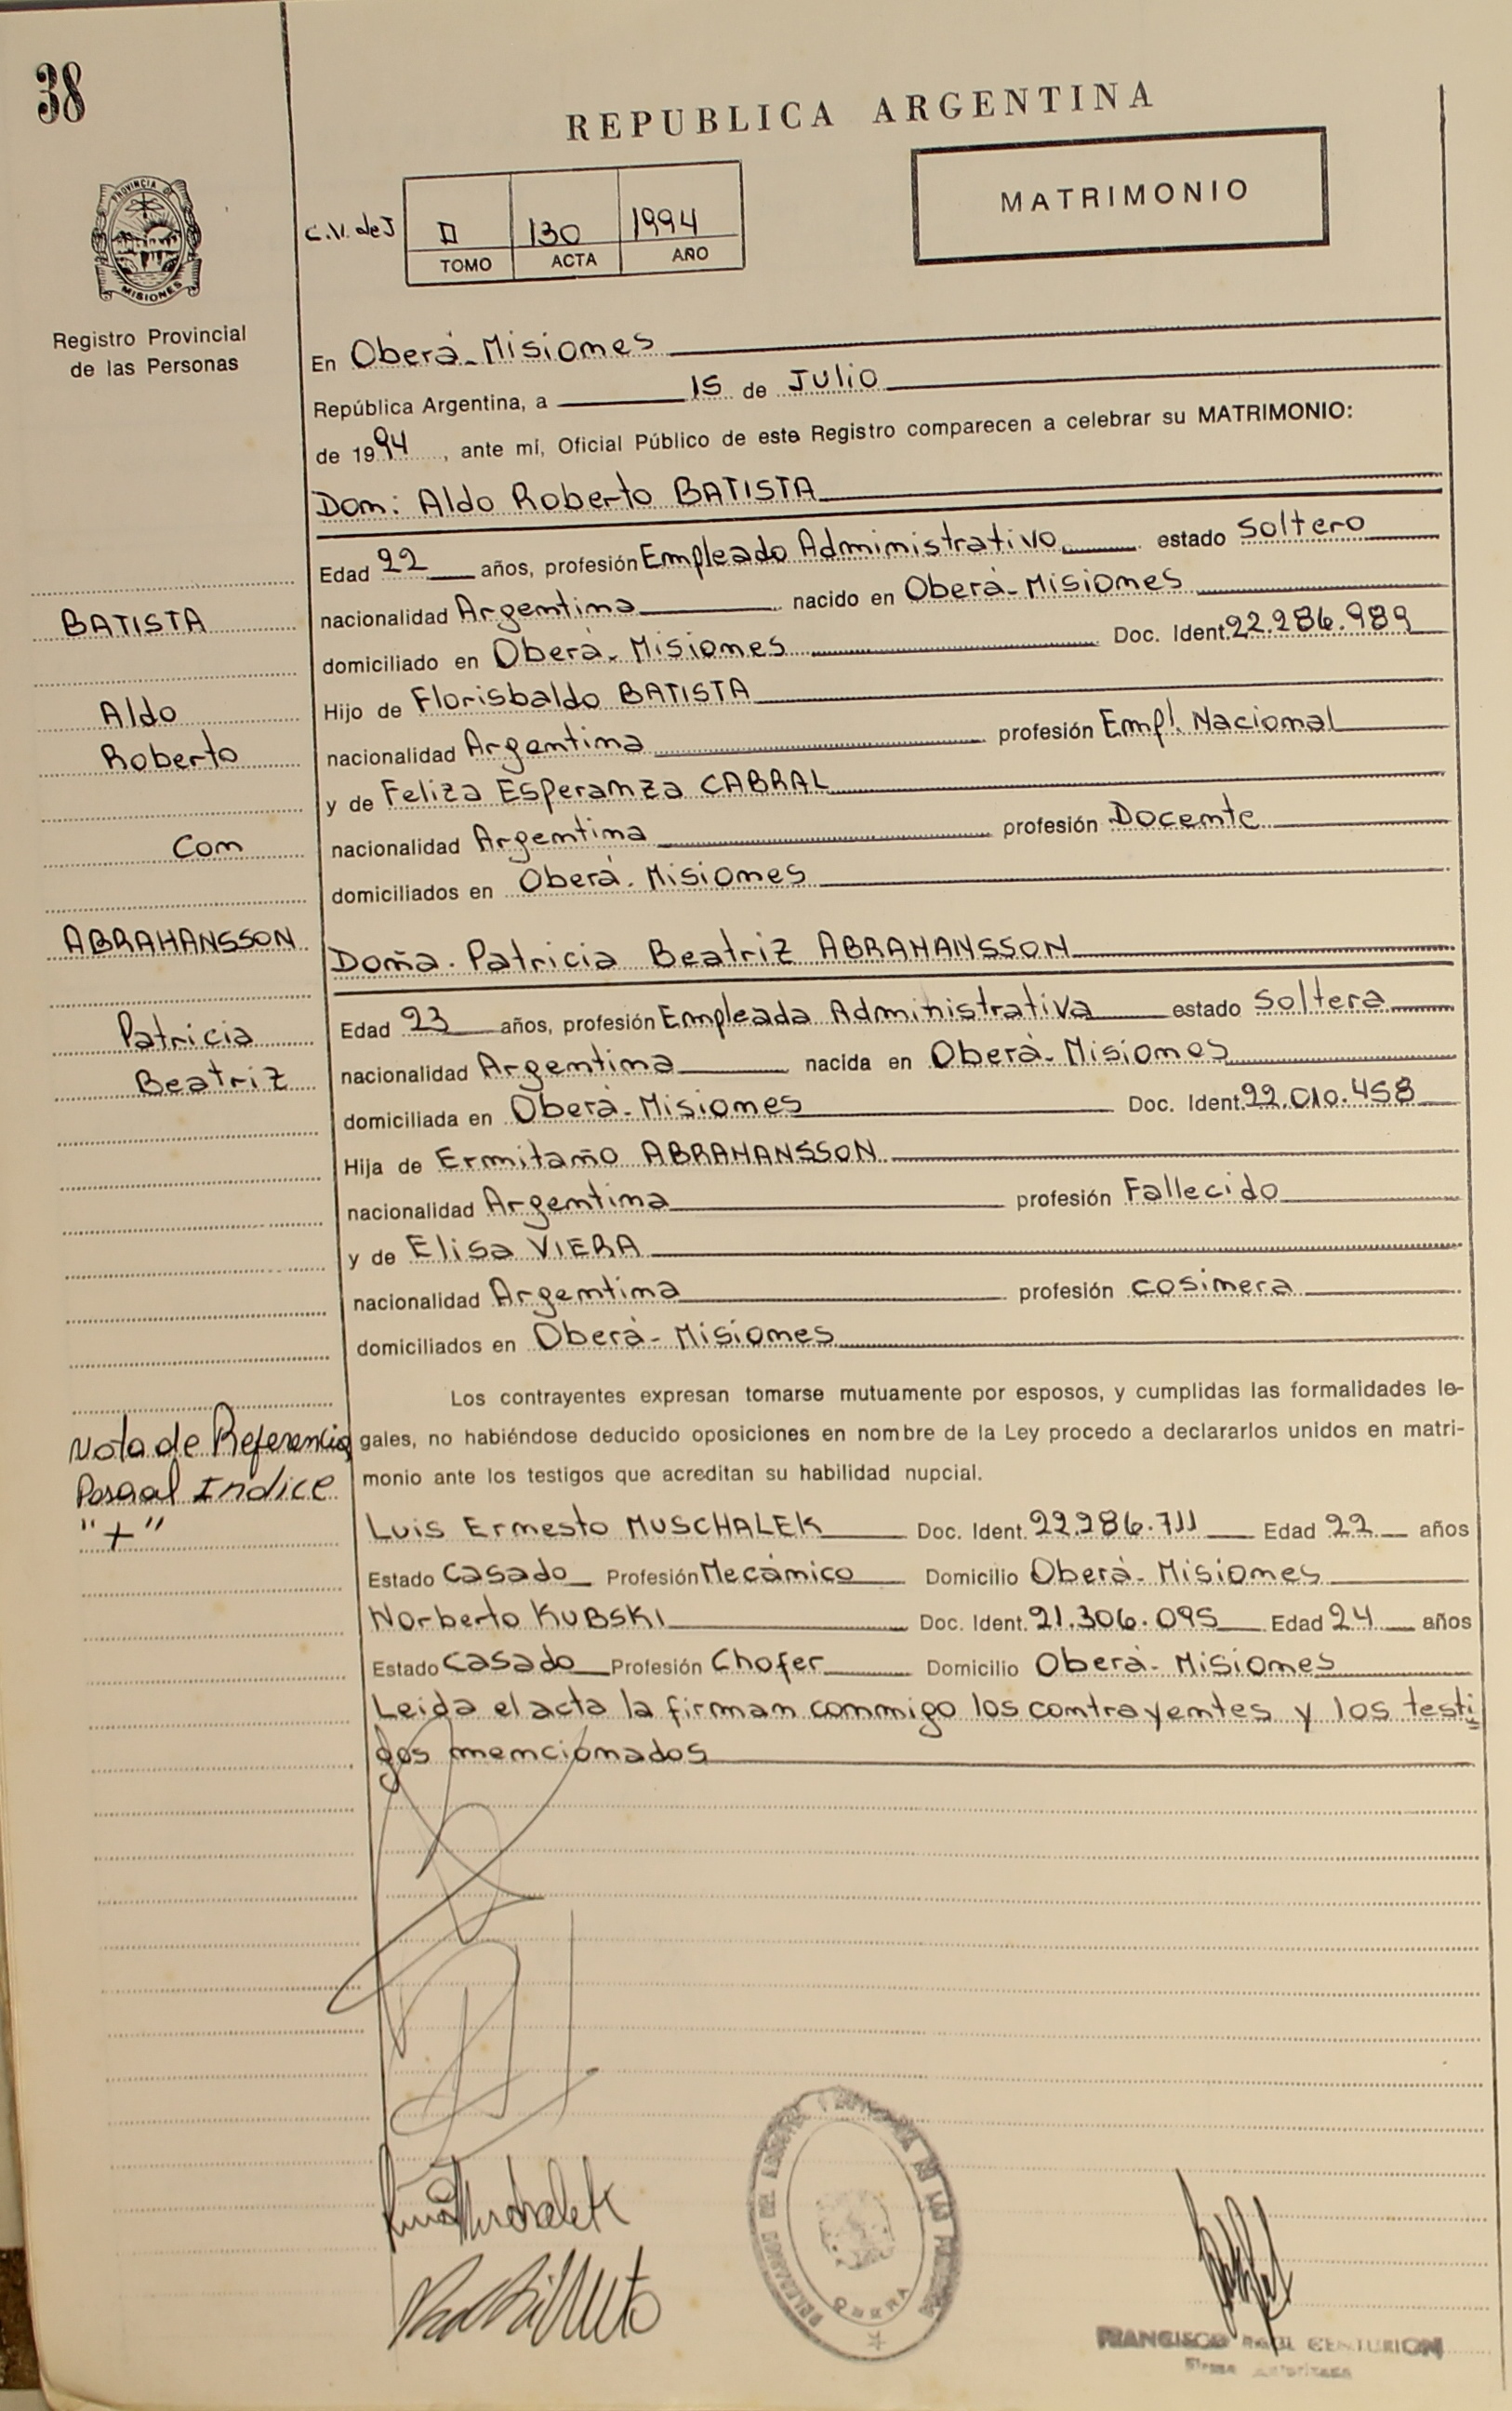 38
REPUBLICA ARGENTINA
MATRIMONIO
PROVINCIA
MISIONES
Registro Provincial
de las Personas
C.V. de J
II 130 1994
TOMO ACTA AÑO
En Oberá-Misiones
República Argentina, a 15 de Julio
de 1994, ante mí, Oficial Público de este Registro comparecen a celebrar su MATRIMONIO:
Don: Aldo Roberto BATISTA
Edad 22 años, profesión Empleado Administrativo estado Soltero
nacionalidad Argentina nacido en Oberá-Misiones
domiciliado en Oberá-Misiones Doc. Ident. 22.286.989
Hijo de Florisbaldo BATISTA
nacionalidad Argentina profesión Empl. Nacional
y de Feliza Esperanza CABRAL
nacionalidad Argentina profesión Docente
domiciliados en Oberá-Misiones
Doña. Patricia Beatriz ABRAHANSSON
Edad 23 años, profesión Empleada Administrativa estado Soltera
nacionalidad Argentina nacida en Oberá-Misiones
domiciliada en Oberá-Misiones Doc. Ident. 22.010.458
Hija de Ermitaño ABRAHANSSON
nacionalidad Argentina profesión Fallecido
y de Elisa VIERA
nacionalidad Argentina profesión cosinera
domiciliados en Oberá-Misiones
Los contrayentes expresan tomarse mutuamente por esposos, y cumplidas las formalidades le-
gales, no habiéndose deducido oposiciones en nombre de la Ley procedo a declararlos unidos en matri-
monio ante los testigos que acreditan su habilidad nupcial.
Luis Ernesto MUSCHALEK Doc. Ident. 22.286.711 Edad 22 años
Estado Casado Profesión Mecánico Domicilio Oberá-Misiones
Norberto KUBSKI Doc. Ident. 21.306.095 Edad 24 años
Estado Casado Profesión Chofer Domicilio Oberá-Misiones
Leida el acta la firman conmigo los contrayentes y los testi
gos mencionados
BATISTA
Aldo
Roberto
Con
ABRAHANSSON
Patricia
Beatriz
Nota de Referencia
Pasa al Indice
"+"
OBERA
FRANCISCO RAUL CENTURION
Firma Autorizada